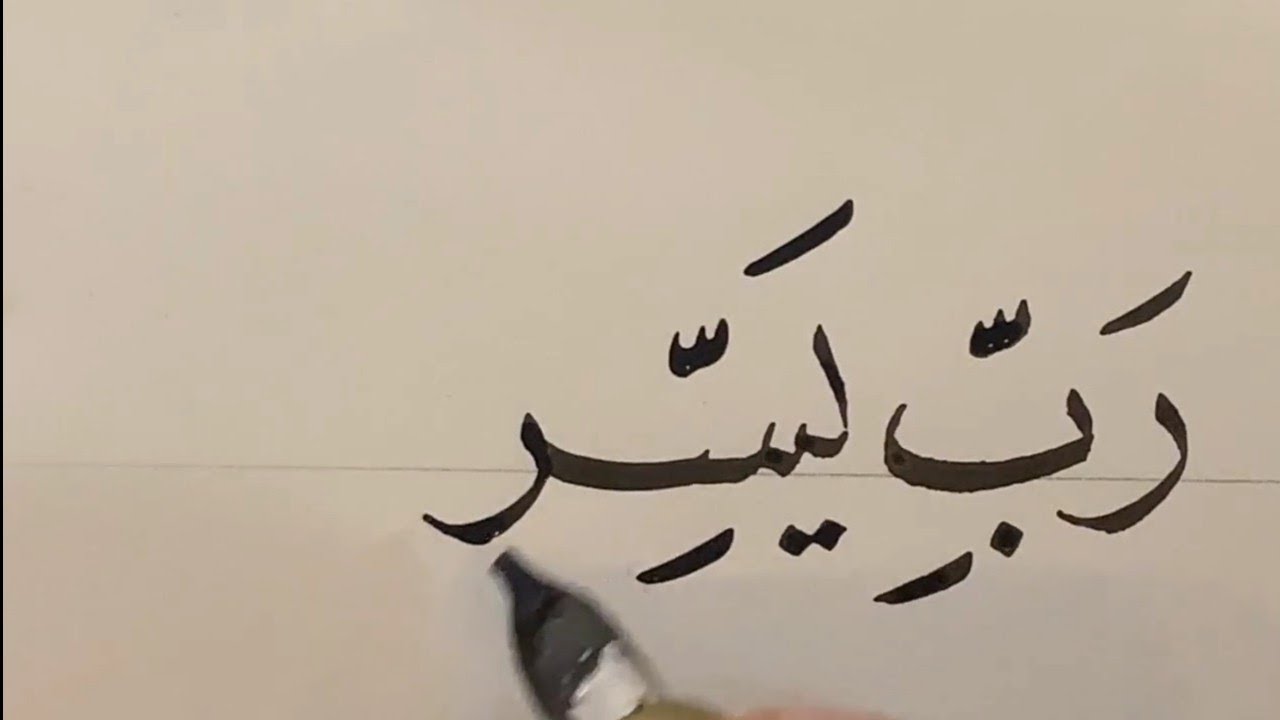 رَبِّ يَسِّر